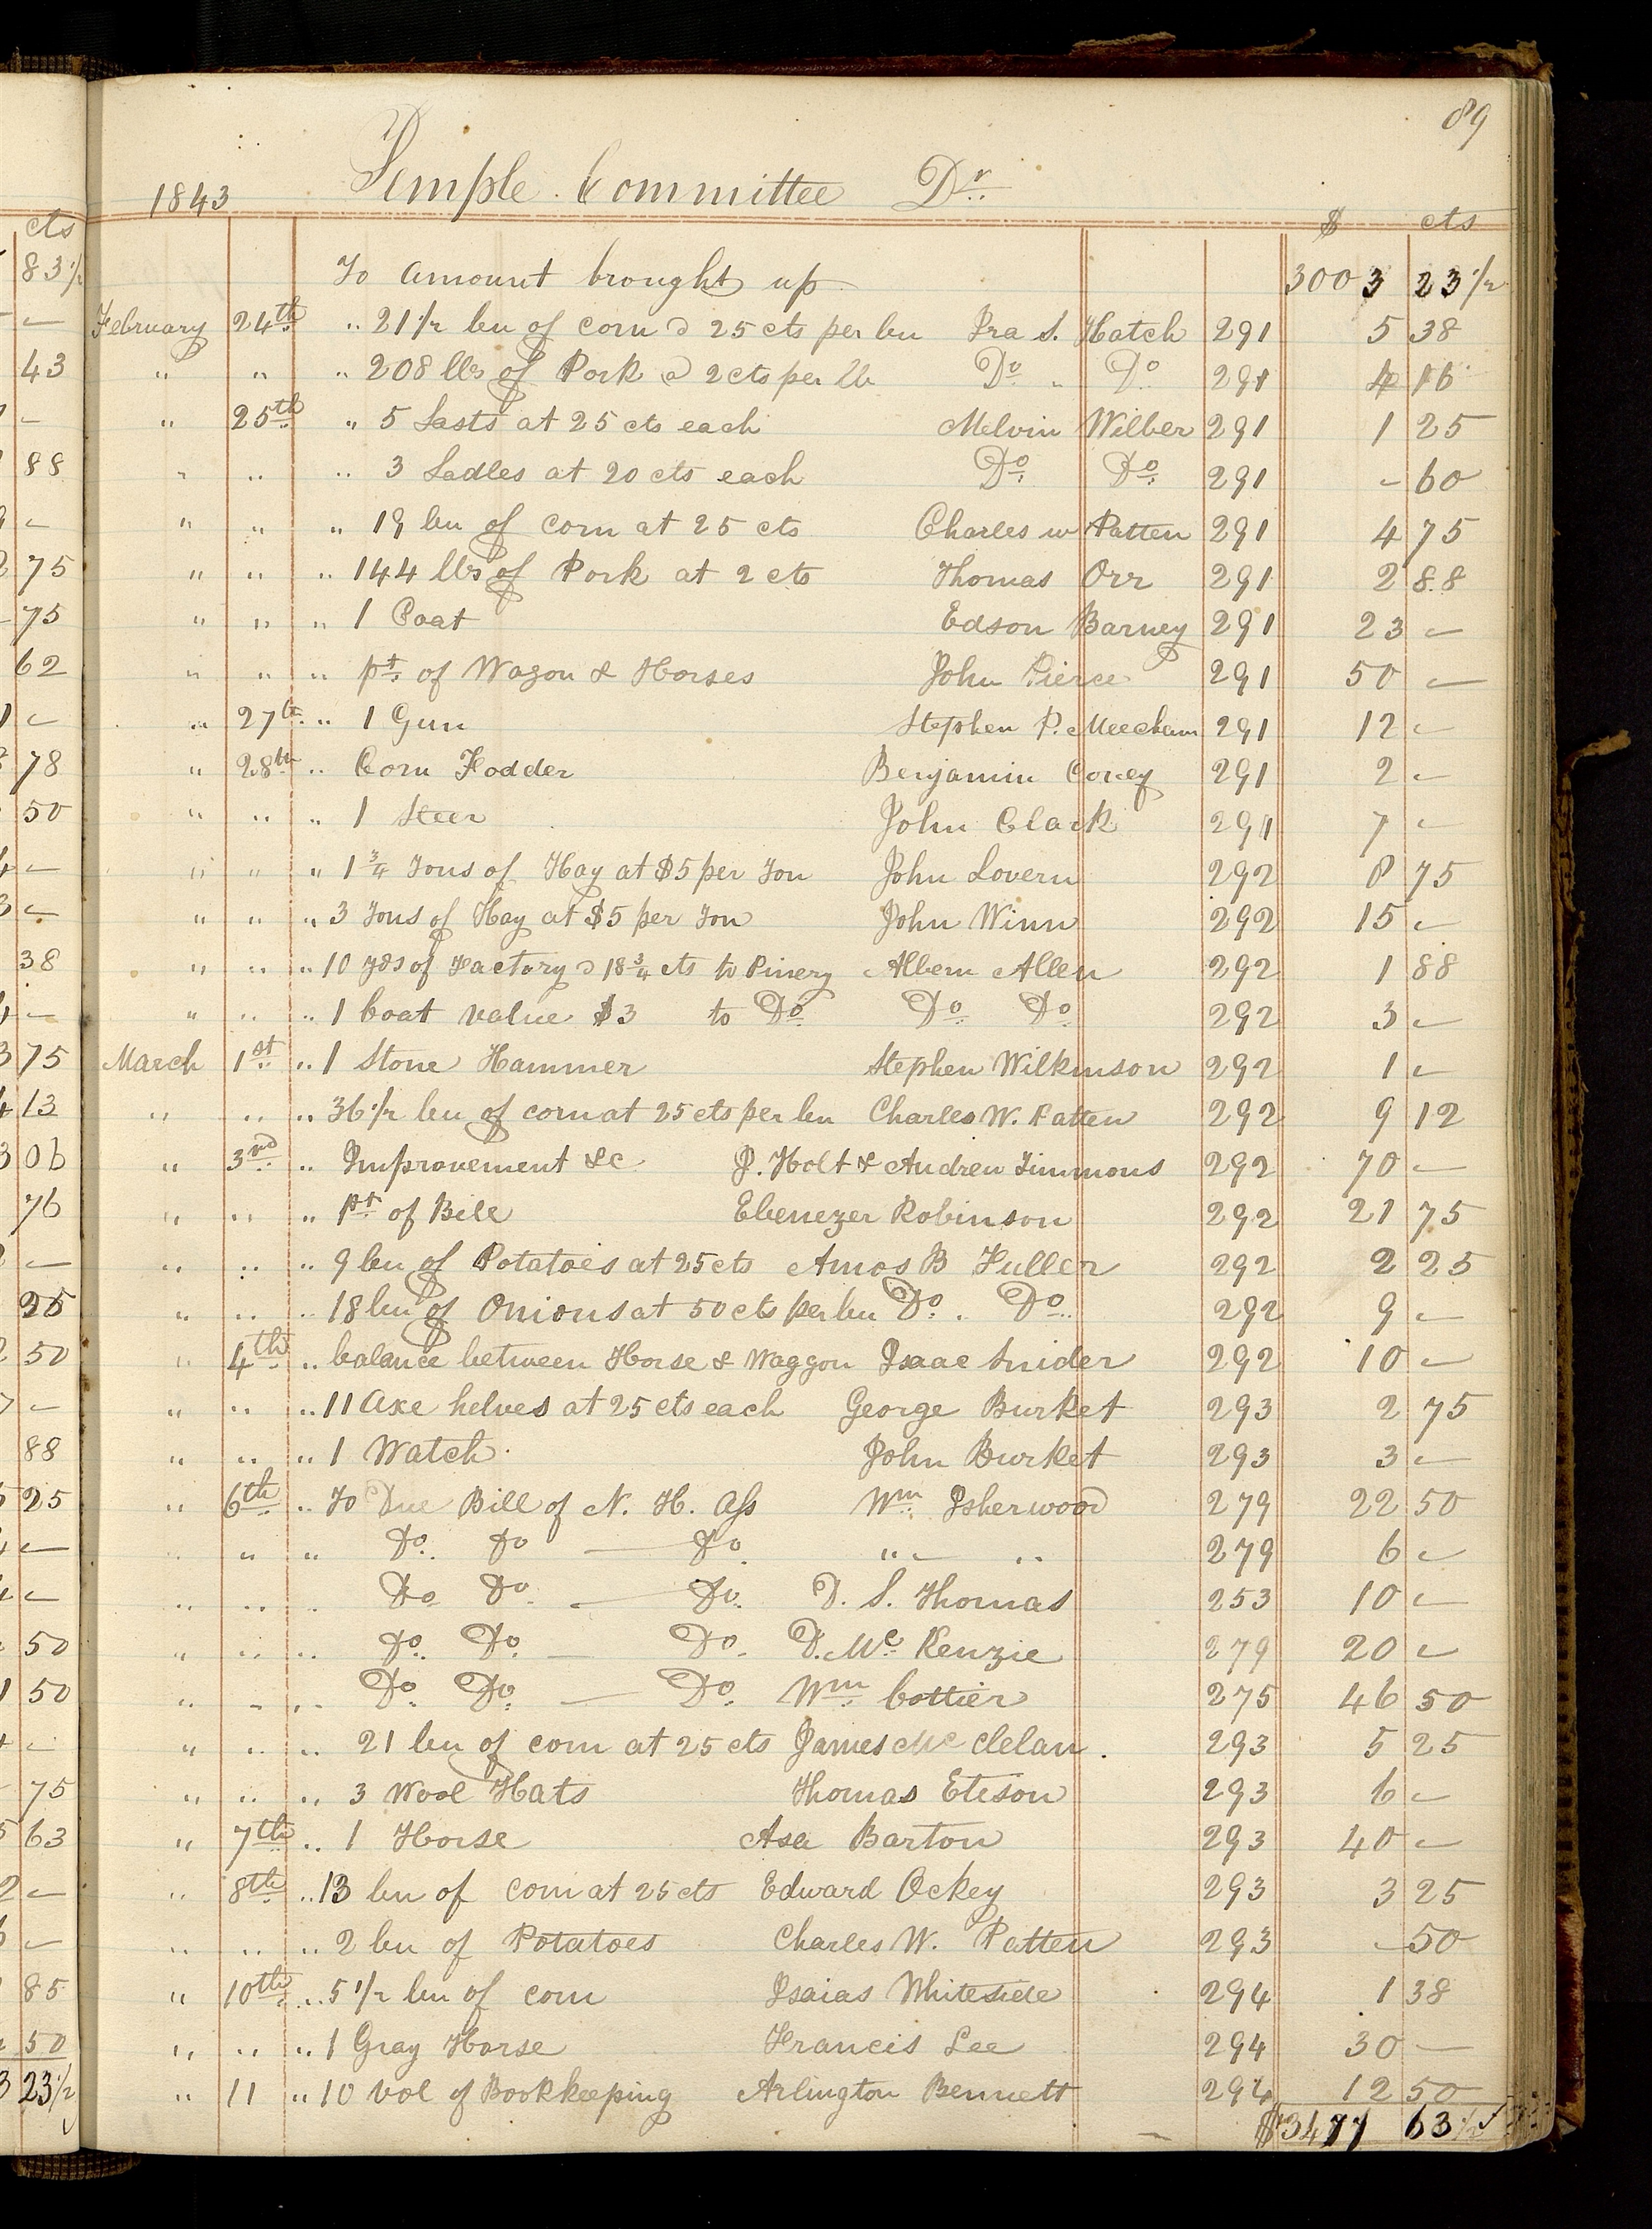 89
1843 Temple Committee Dr.
$ cts
To amount brought up 3003 23 1/2
February 24th " 21 1/2 bu of corn @ 25 cts per bu Ira S. Hatch 291 5 38
" " " 208 lbs of Pork @ 2 cts per lb Do " Do 291 4 16
" 25th " 5 Lasts at 25 cts each Melvin Wilber 291 1 25
" " " 3 Ladles at 20 cts each Do. Do. 291 - 60
" " " 19 bu of corn at 25 cts Charles W Patten 291 4 75
" " " 144 lbs of Pork at 2 cts Thomas Orr 291 2 88
" " " 1 Coat Edson Barney 291 23 -
" " " pt. of Wagon & Horses John Pierce 291 50 -
" 27th " 1 Gun Stephen P. Meecham 291 12 -
" 28th " Corn Fodder Benjamin Covey 291 2 -
" " " 1 Steer John Clark 291 7 -
" " " 1 3/4 Tons of Hay at $5 per Ton John Lovern 292 8 75
" " " 3 Tons of Hay at $5 per Ton John Winn 292 15 -
" " " 10 yds of Factory @ 18 3/4 cts to Pinery Albern Allen 292 1 88
" " " 1 Coat value $3 to Do. Do. Do. 292 3 -
March 1st " 1 Stone Hammer Stephen Wilkinson 292 1 -
" " " 36 1/2 bu of corn at 25 cts per bu Charles W. Patten 292 9 12
" 3rd " Improvement &c J. Holt & Andrew Timmons 292 70 -
" " " pt. of Bill Ebenezer Robinson 292 21 75
" " " 9 bu of Potatoes at 25 cts Amos B Fuller 292 2 25
" " " 18 bu of Onions at 50 cts per bu Do. Do. 292 9 -
" 4th " balance between Horse & Waggon Isaac Snider 292 10 -
" " " 11 Axe helves at 25 cts each George Burket 293 2 75
" " " 1 Watch John Burket 293 3 -
" 6th " To Due Bill of N. H. Ass Wm. Isherwood 279 22 50
" " " Do. Do — Do. " " 279 6 -
" " " Do Do. — Do. D. S. Thomas 253 10 -
" " " Do. Do. — Do. D. McKenzie 279 20 -
" " " Do. Do. — Do. Wm. Cottier 275 46 50
" " " 21 bu of corn at 25 cts James Mc Clelan. 293 5 25
" " " 3 Wool Hats Thomas Eteson 293 6 -
" 7th " 1 Horse Asa Barton 293 40 -
" 8th " 13 bu of corn at 25 cts Edward Ockey 293 3 25
" " " 2 bu of Potatoes Charles W. Patten 293 - 50
" 10th " 5 1/2 bu of corn Isaias Whiteside 294 1 38
" " " 1 Gray Horse Francis Lee 294 30 -
" 11 " 10 vol of Bookkeeping Arlington Bennett 294 12 50
$3477 63 1/2
cts
83 1/2
-
43
-
88
-
75
75
62
-
78
50
-
-
38
-
75
13
06
76
-
25
50
-
88
25
-
-
50
50
-
75
63
-
-
85
50
23 1/2